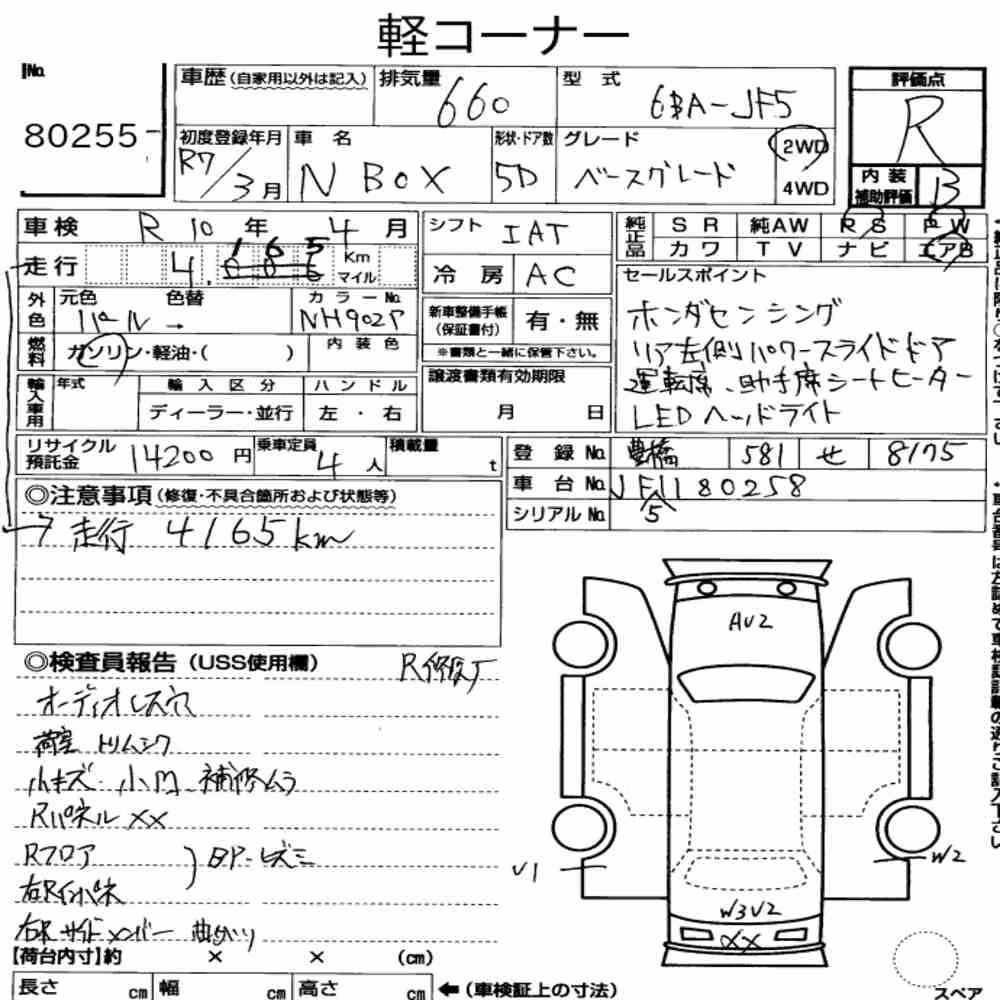 軽コーナー
No.
80255
車歴(自家用以外は記入)
排気量 660
型式 6BA-JF5
評価点
R
初度登録年月
R7/3月
車名
N BOX
形状・ドア数
5D
グレード
ベースグレード
2WD
4WD
内装
補助評価
B
車検 R 10 年 4 月
走行 4, 165 Km マイル
外色 元色 色替 カラーNo.
パール → NH902P
燃料 ガソリン・軽油・( ) 内装色
輸入車用 年式 輸入区分 ハンドル
ディーラー・並行 左・右
シフト IAT
冷房 AC
新車整備手帳
(保証書付) 有・無
※書類と一緒に保管下さい。
譲渡書類有効期限
月 日
純正品 SR 純AW RS PW
カワ TV ナビ エアB
セールスポイント
ホンダセンシング
リア左側パワースライドドア
運転席、助手席シートヒーター
LEDヘッドライト
リサイクル
預託金 14200 円
乗車定員 4 人
積載量 t
登録No. 豊橋 581 せ 8175
車台No. JF1180258
5
シリアルNo.
◎注意事項(修復・不具合箇所および状態等)
走行 4165km
◎検査員報告(USS使用欄)
オーディオレス穴
荷室トリムシワ
小キズ 小凹 補修ムラ
Rパネル XX
Rフロア
右Rインパネ
右R サイドメンバー 曲がり
AU2
U1
W2
W3U2
XX
【荷台内寸】約 × × (cm)
長さ cm 幅 cm 高さ cm
←(車検証上の寸法)
スペア